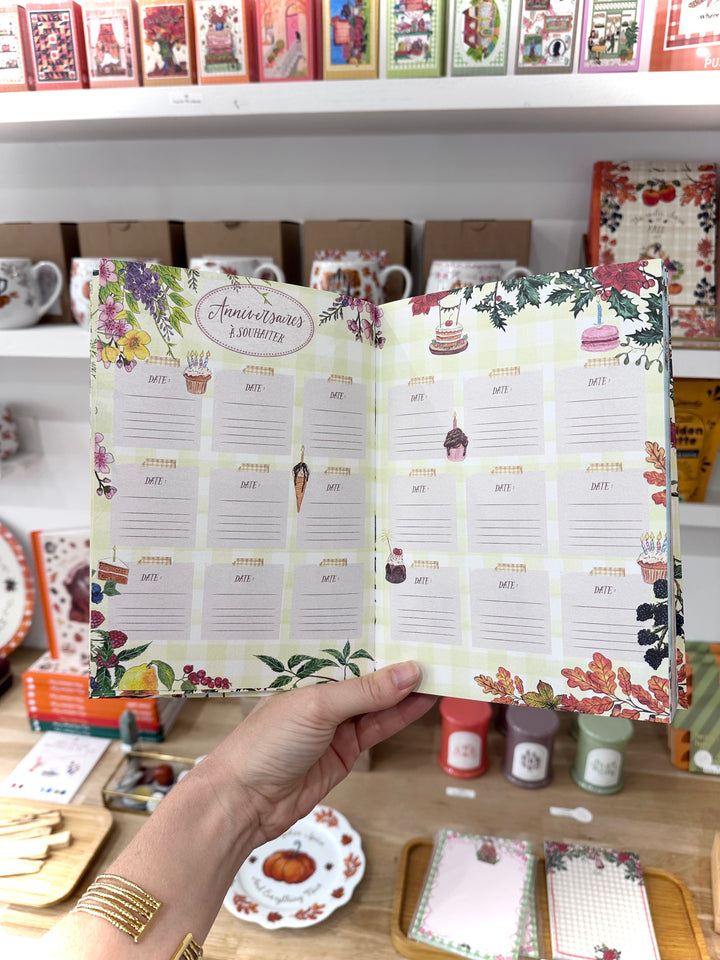 Anniversaires
À SOUHAITER
DATE : DATE : DATE :
DATE : DATE : DATE :
DATE : DATE : DATE :
DATE : DATE : DATE :
DATE : DATE : DATE :
DATE : DATE : DATE :
And Everything Nice